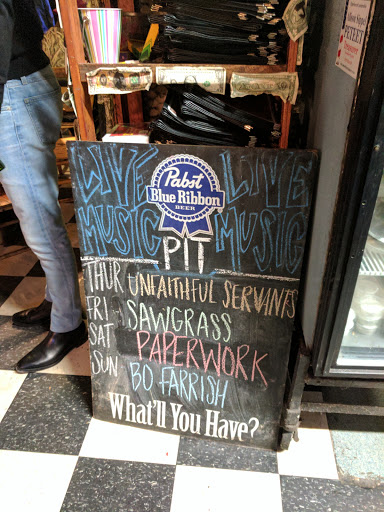 LIVE LIVE
Pabst
Blue Ribbon
BEER
MUSIC MUSIC
PIT
THUR UNFAITHFUL SERVANTS
FRI SAWGRASS
SAT PAPERWORK
SUN BO FARRISH
What'll You Have?